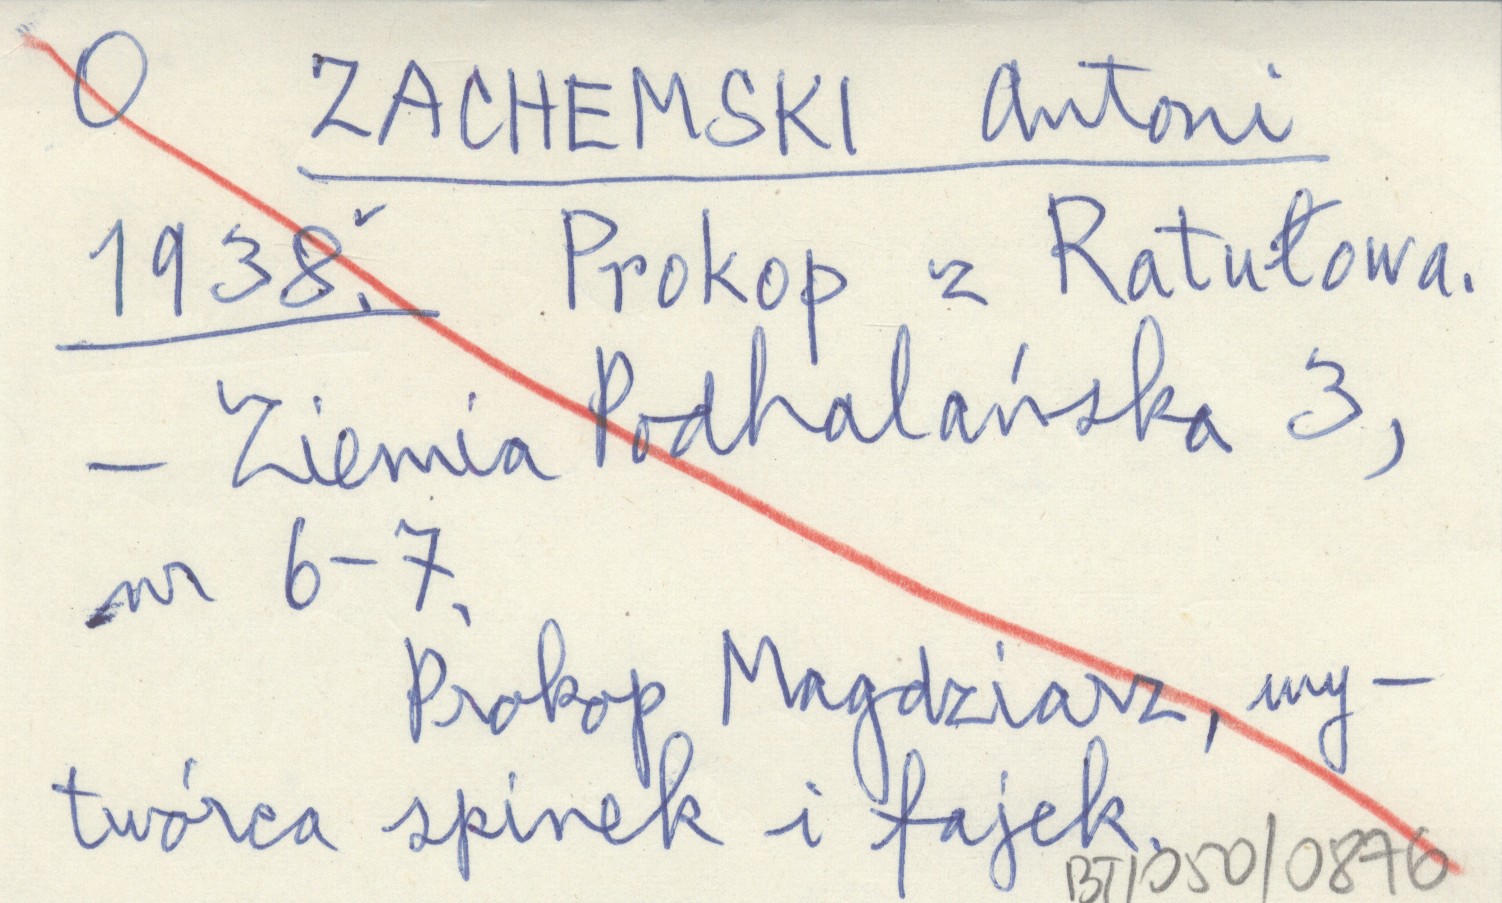 O ZACHEMSKI Antoni
1938. Prokop z Ratułowa.
– Ziemia Podhalańska 3,
nr 6–7.
Prokop Magdziarz, wy–
twórca spinek i fajek.
BT/050/0876